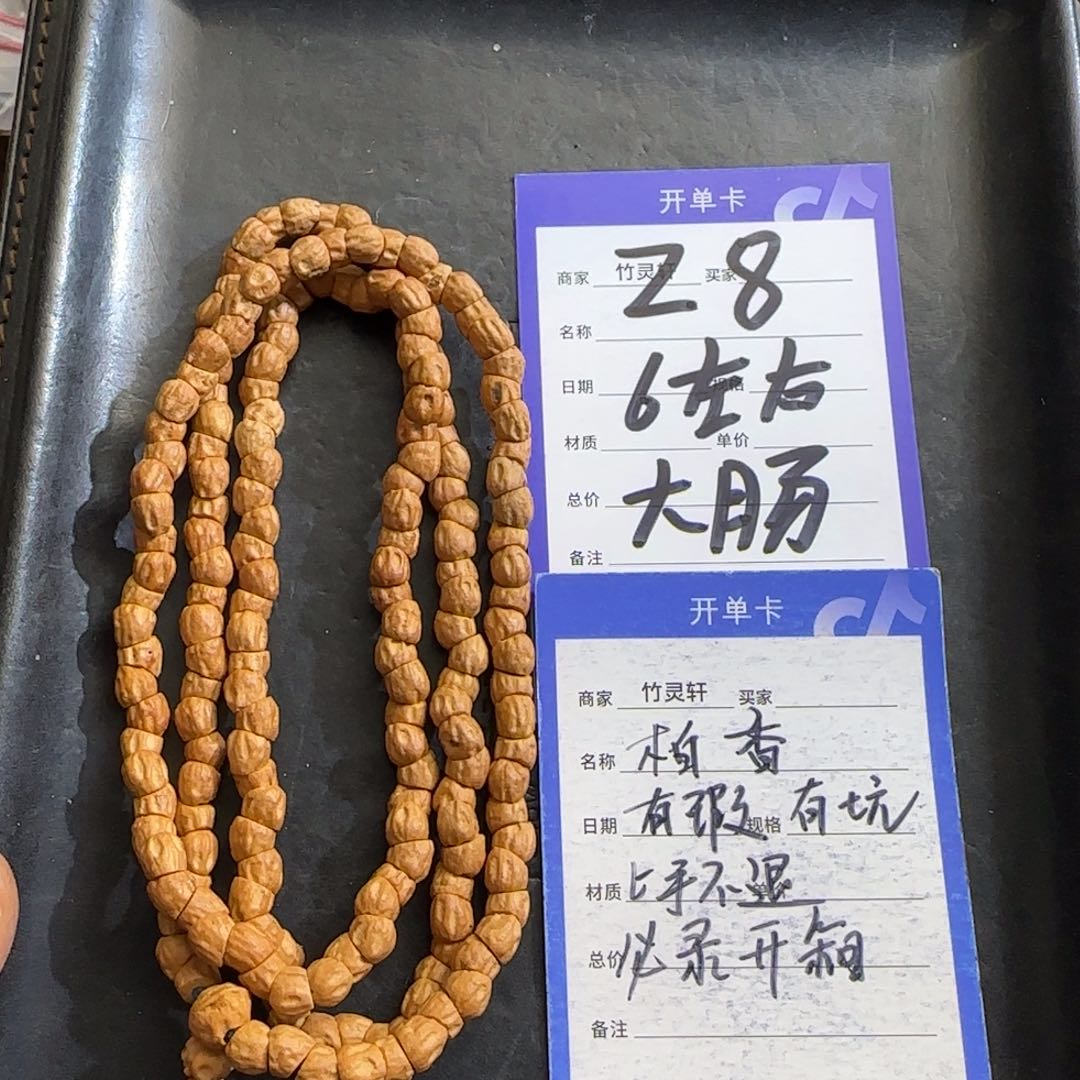 开单卡
商家 竹灵轩 买家
Z8
名称
日期 规格
6左右
材质 单价
总价
大肠
备注
开单卡
商家 竹灵轩 买家
名称 柏香
日期 有瑕 规格 有坑
材质 上手不退 单价
总价 必录开箱
备注